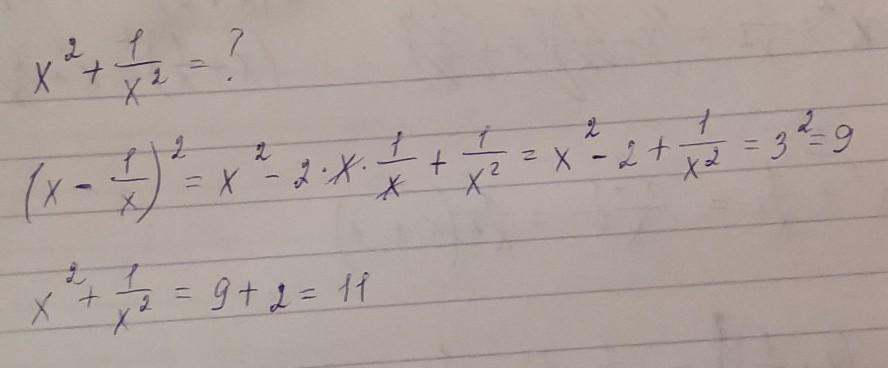 x² + 1/x² = ?
(x - 1/x)² = x² - 2·x·1/x + 1/x² = x² - 2 + 1/x² = 3² = 9
x² + 1/x² = 9 + 2 = 11